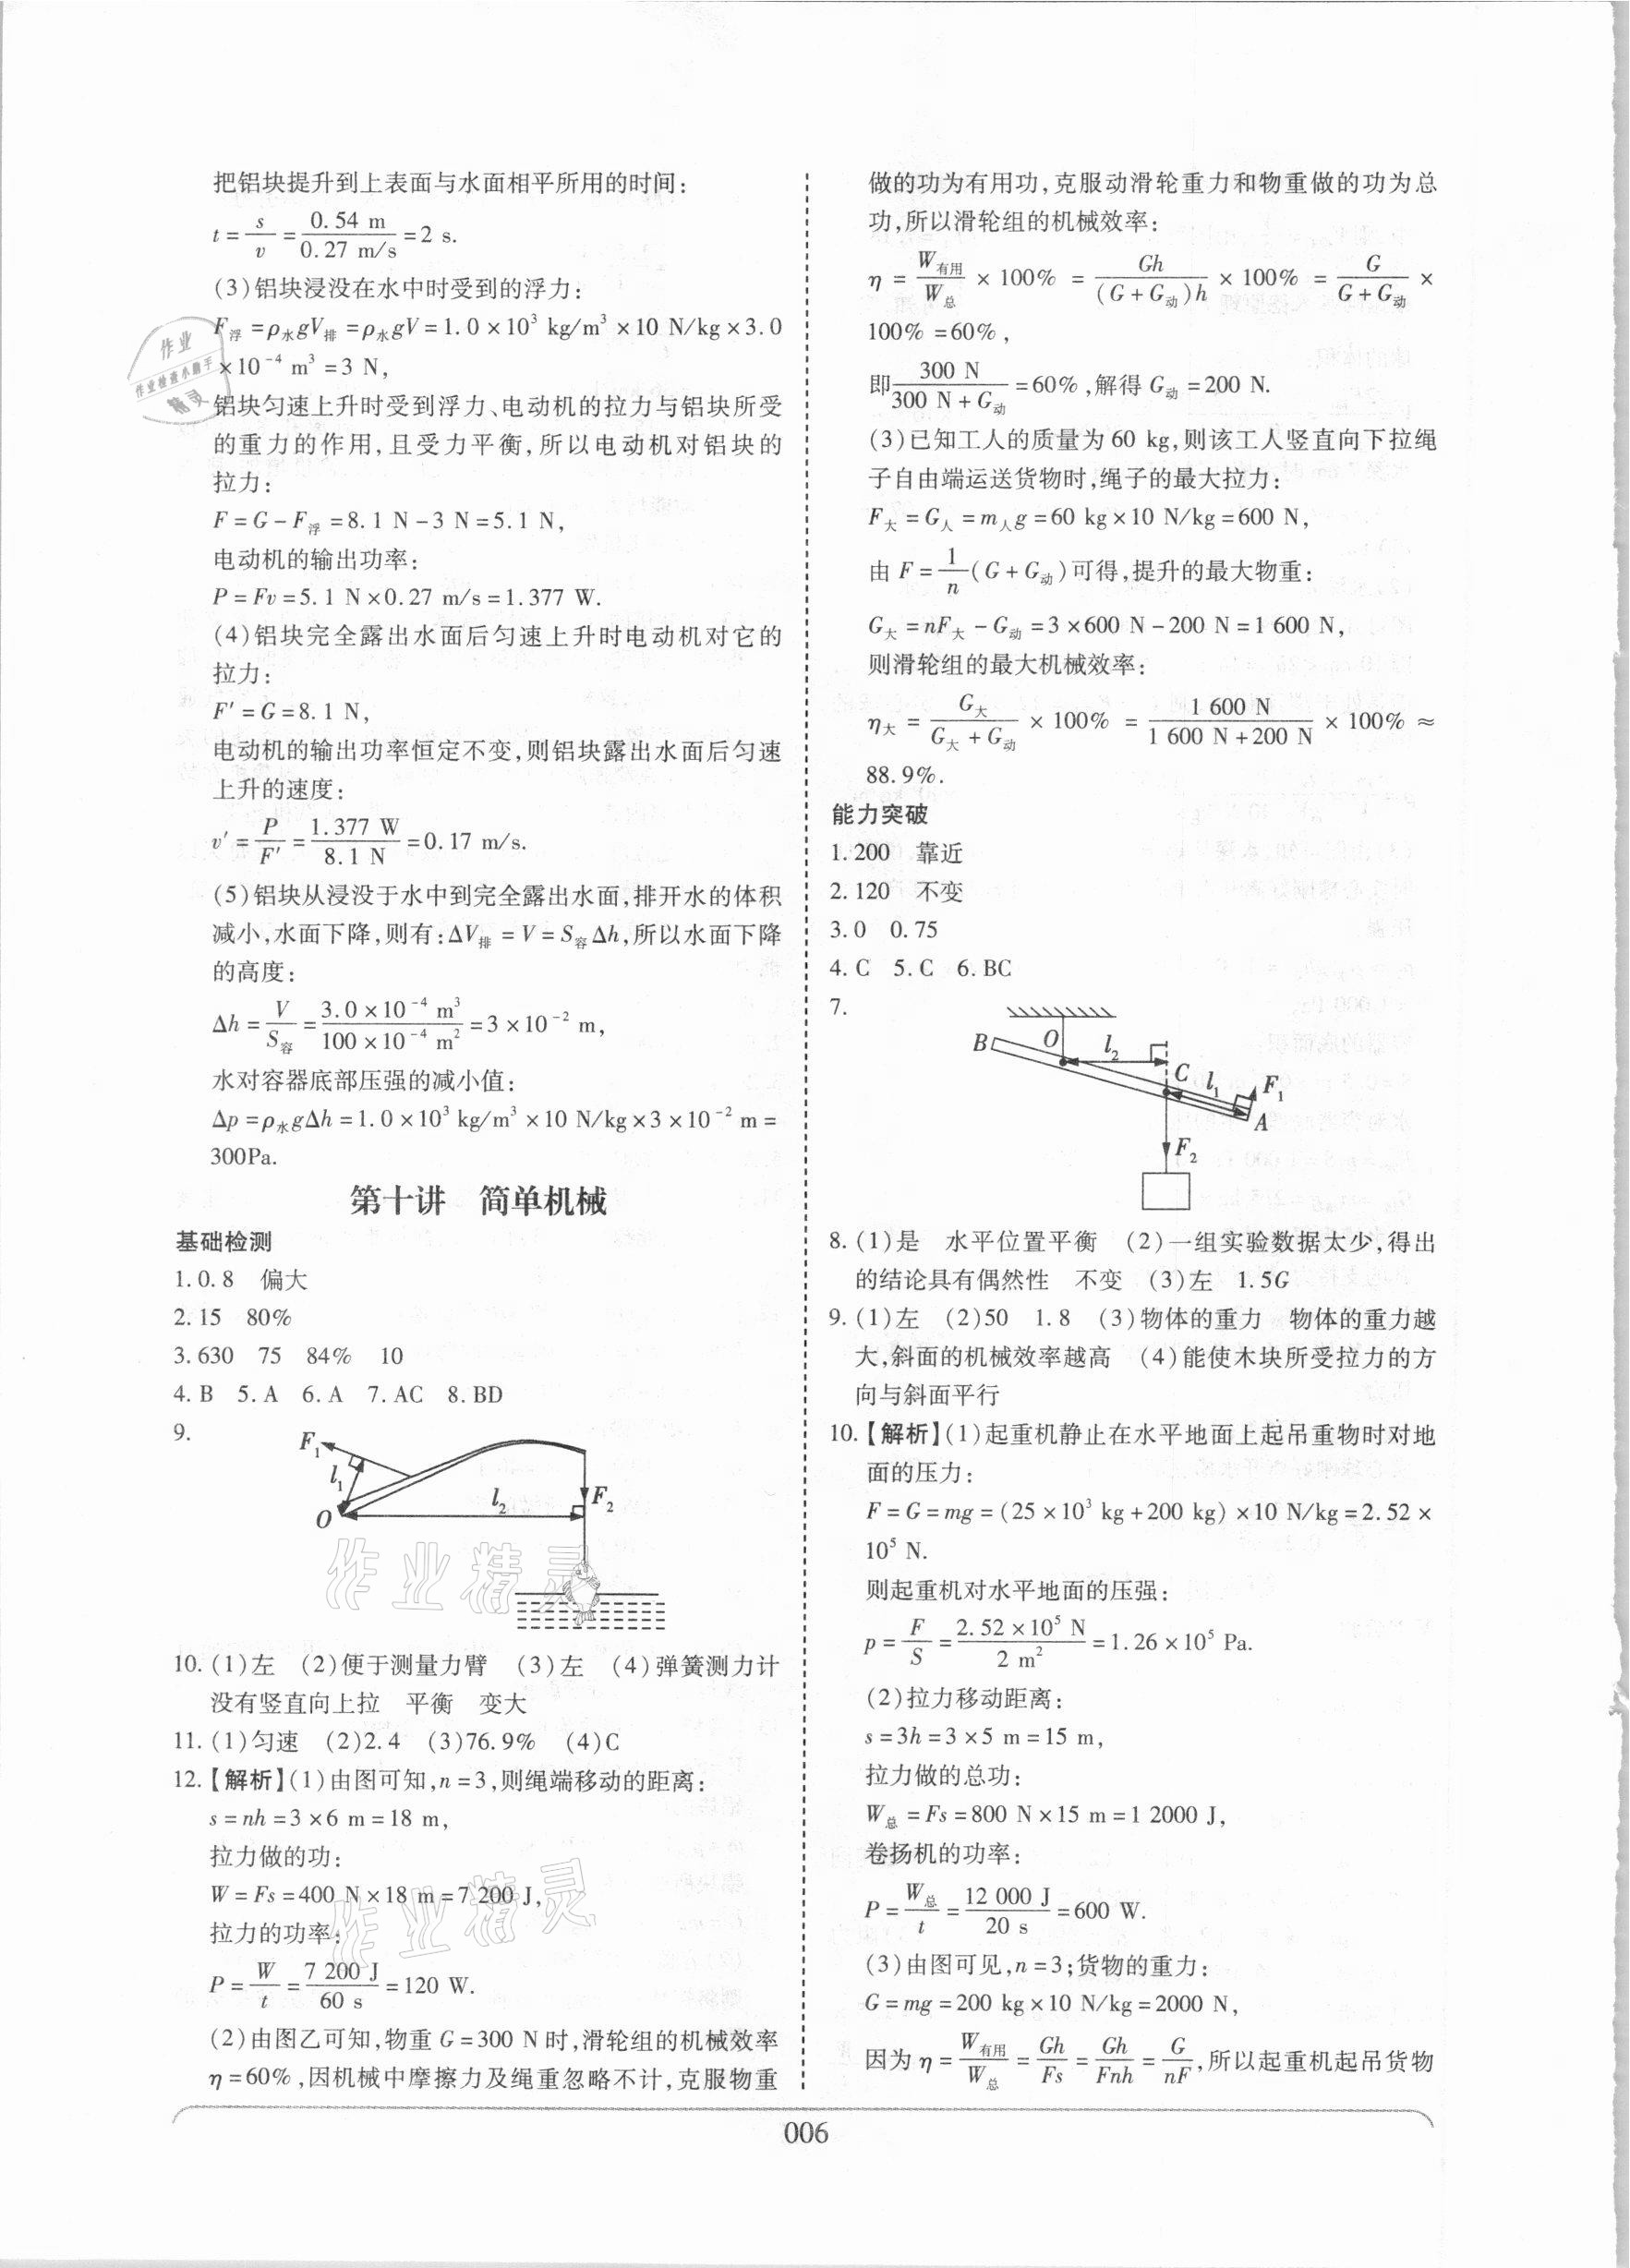 把铝块提升到上表面与水面相平所用的时间:
t=s/v=0.54 m/0.27 m/s=2 s.
(3)铝块浸没在水中时受到的浮力:
F浮=ρ水gV排=ρ水gV=1.0×10³ kg/m³×10 N/kg×3.0
×10⁻⁴ m³=3 N,
铝块匀速上升时受到浮力、电动机的拉力与铝块所受
的重力的作用,且受力平衡,所以电动机对铝块的
拉力:
F=G-F浮=8.1 N-3 N=5.1 N,
电动机的输出功率:
P=Fv=5.1 N×0.27 m/s=1.377 W.
(4)铝块完全露出水面后匀速上升时电动机对它的
拉力:
F′=G=8.1 N,
电动机的输出功率恒定不变,则铝块露出水面后匀速
上升的速度:
v′=P/F′=1.377 W/8.1 N=0.17 m/s.
(5)铝块从浸没于水中到完全露出水面,排开水的体积
减小,水面下降,则有:ΔV排=V=S容Δh,所以水面下降
的高度:
Δh=V/S容=3.0×10⁻⁴ m³/100×10⁻⁴ m²=3×10⁻² m,
水对容器底部压强的减小值:
Δp=ρ水gΔh=1.0×10³ kg/m³×10 N/kg×3×10⁻² m=
300Pa.
第十讲 简单机械
基础检测
1.0.8 偏大
2.15 80%
3.630 75 84% 10
4.B 5.A 6.A 7.AC 8.BD
9.
F₁
l₁
l₂
F₂
O
10.(1)左 (2)便于测量力臂 (3)左 (4)弹簧测力计
没有竖直向上拉 平衡 变大
11.(1)匀速 (2)2.4 (3)76.9% (4)C
12.【解析】(1)由图可知,n=3,则绳端移动的距离:
s=nh=3×6 m=18 m,
拉力做的功:
W=Fs=400 N×18 m=7 200 J,
拉力的功率:
P=W/t=7 200 J/60 s=120 W.
(2)由图乙可知,物重G=300 N时,滑轮组的机械效率
η=60%,因机械中摩擦力及绳重忽略不计,克服物重
做的功为有用功,克服动滑轮重力和物重做的功为总
功,所以滑轮组的机械效率:
η=W有用/W总×100%=Gh/(G+G动)h×100%=G/G+G动×
100%=60%,
即300 N/300 N+G动=60%,解得G动=200 N.
(3)已知工人的质量为60 kg,则该工人竖直向下拉绳
子自由端运送货物时,绳子的最大拉力:
F大=G人=m人g=60 kg×10 N/kg=600 N,
由F=1/n(G+G动)可得,提升的最大物重:
G大=nF大-G动=3×600 N-200 N=1 600 N,
则滑轮组的最大机械效率:
η大=G大/G大+G动×100%=1 600 N/1 600 N+200 N×100%≈
88.9%.
能力突破
1.200 靠近
2.120 不变
3.0 0.75
4.C 5.C 6.BC
7.
B
O
l₂
C
l₁
F₁
A
F₂
8.(1)是 水平位置平衡 (2)一组实验数据太少,得出
的结论具有偶然性 不变 (3)左 1.5G
9.(1)左 (2)50 1.8 (3)物体的重力 物体的重力越
大,斜面的机械效率越高 (4)能使木块所受拉力的方
向与斜面平行
10.【解析】(1)起重机静止在水平地面上起吊重物时对地
面的压力:
F=G=mg=(25×10³ kg+200 kg)×10 N/kg=2.52×
10⁵ N.
则起重机对水平地面的压强:
p=F/S=2.52×10⁵ N/2 m²=1.26×10⁵ Pa.
(2)拉力移动距离:
s=3h=3×5 m=15 m,
拉力做的总功:
W总=Fs=800 N×15 m=1 2000 J,
卷扬机的功率:
P=W总/t=12 000 J/20 s=600 W.
(3)由图可见,n=3;货物的重力:
G=mg=200 kg×10 N/kg=2000 N,
因为η=W有用/W总=Gh/Fs=Gh/Fnh=G/nF,所以起重机起吊货物
006
作业
作业检查小助手
精灵
作业精灵
作业精灵